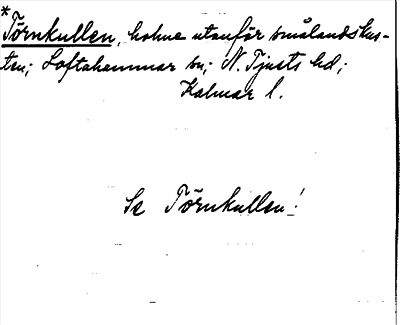 *
Törnkullen, holme utanför smålandskus-
ten; Loftahammar sn; N. Tjusts hd;
Kalmar l.
Se Törnkullen!